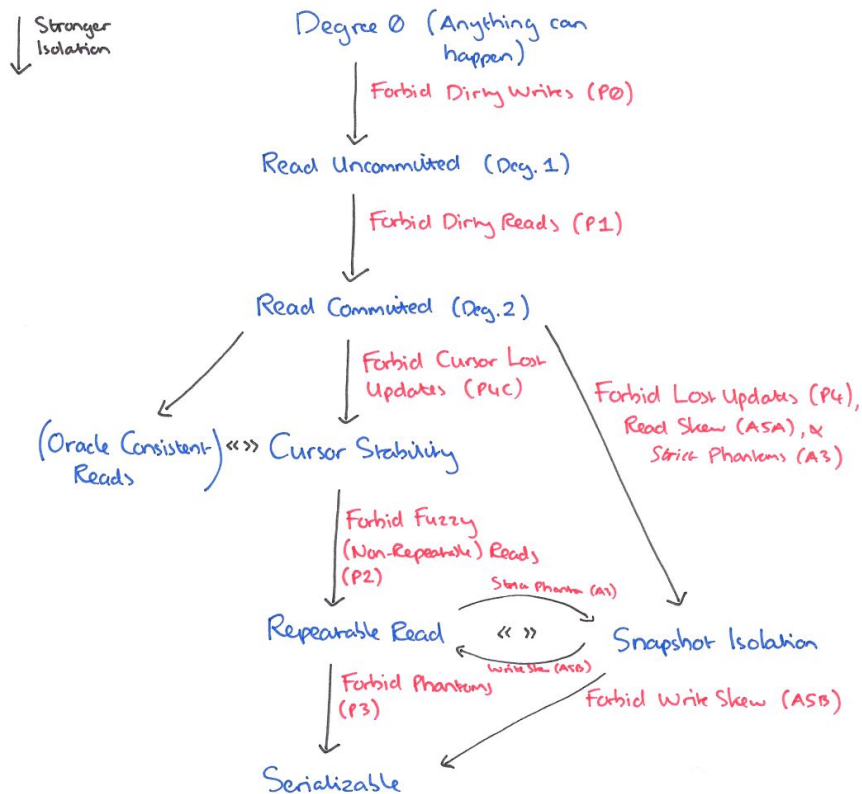 Stronger
Isolation
Degree 0 (Anything can
happen)
Forbid Dirty Writes (P0)
Read Uncommited (Deg. 1)
Forbid Dirty Reads (P1)
Read Commited (Deg. 2)
Forbid Cursor Lost
Updates (P4C)
Forbid Lost Updates (P4),
Read Skew (A5A), &
Strict Phantoms (A3)
(Oracle Consistent
Reads)
«»
Cursor Stability
Forbid Fuzzy
(Non-Repeatable) Reads
(P2)
Strict Phantom (A3)
Repeatable Read
« »
Snapshot Isolation
Write Skew (A5B)
Forbid Phantoms
(P3)
Forbid Write Skew (A5B)
Serializable